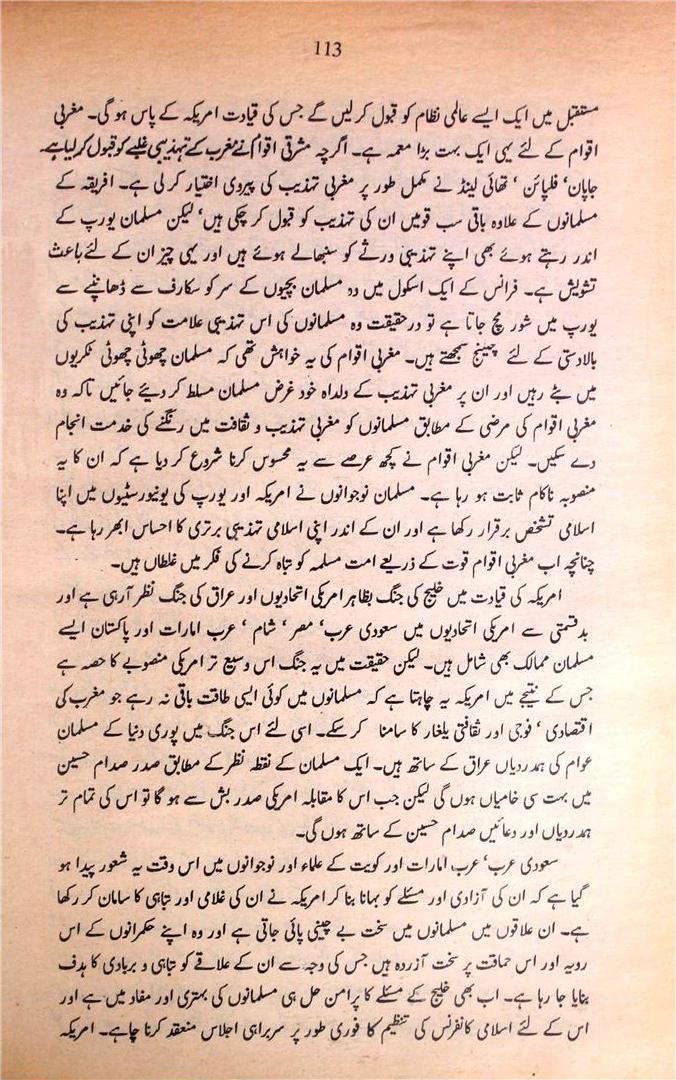 113
مستقبل میں ایک ایسے عالمی نظام کو قبول کر لیں گے جس کی قیادت امریکہ کے پاس ہو گی۔ مغربی
اقوام کے لئے یہی ایک بہت بڑا معمہ ہے۔ اگرچہ مشرقی اقوام نے مغرب کے تہذیبی غلبے کو قبول کر لیا ہے۔
جاپان، فلپائن، تھائی لینڈ نے مکمل طور پر مغربی تہذیب کی پیروی اختیار کر لی ہے۔ افریقہ کے
مسلمانوں کے علاوہ باقی سب قومیں ان کی تہذیب کو قبول کر چکی ہیں، لیکن مسلمان یورپ کے
اندر رہتے ہوئے بھی اپنے تہذیبی ورثے کو سنبھالے ہوئے ہیں اور یہی چیز ان کے لئے باعث
تشویش ہے۔ فرانس کے ایک اسکول میں دہ مسلمان بچیوں کے سر کو سکارف سے ڈھانپنے سے
یورپ میں شور مچ جاتا ہے تو درحقیقت وہ مسلمانوں کی اس تہذیبی علامت کو اپنی تہذیب کی
بالادستی کے لئے چیلنج سمجھتے ہیں۔ مغربی اقوام کی یہ خواہش تھی کہ مسلمان چھوٹی چھوٹی ٹکڑیوں
میں بٹے رہیں اور ان پر مغربی تہذیب کے دلدادہ خود غرض مسلمان مسلط کر دیئے جائیں تاکہ وہ
مغربی اقوام کی مرضی کے مطابق مسلمانوں کو مغربی تہذیب و ثقافت میں رنگنے کی خدمت انجام
دے سکیں۔ لیکن مغربی اقوام نے کچھ عرصے سے یہ محسوس کرنا شروع کر دیا ہے کہ ان کا یہ
منصوبہ ناکام ثابت ہو رہا ہے۔ مسلمان نوجوانوں نے امریکہ اور یورپ کی یونیورسٹیوں میں اپنا
اسلامی تشخص برقرار رکھا ہے اور ان کے اندر اپنی اسلامی تہذیبی برتری کا احساس ابھر رہا ہے۔
چنانچہ اب مغربی اقوام قوت کے ذریعے امت مسلمہ کو تباہ کرنے کی فکر میں غلطاں ہیں۔
امریکہ کی قیادت میں خلیج کی جنگ بظاہر امریکی اتحادیوں اور عراق کی جنگ نظر آرہی ہے اور
بدقسمتی سے امریکی اتحادیوں میں سعودی عرب، مصر، شام، عرب امارات اور پاکستان ایسے
مسلمان ممالک بھی شامل ہیں۔ لیکن حقیقت میں یہ جنگ اس وسیع تر امریکی منصوبے کا حصہ ہے
جس کے نتیجے میں امریکہ یہ چاہتا ہے کہ مسلمانوں میں کوئی ایسی طاقت باقی نہ رہے جو مغرب کی
اقتصادی، فوجی اور ثقافتی یلغار کا سامنا کر سکے۔ اسی لئے اس جنگ میں پوری دنیا کے مسلمان
عوام کی ہمدردیاں عراق کے ساتھ ہیں۔ ایک مسلمان کے نقطہ نظر کے مطابق صدر صدام حسین
میں بہت سی خامیاں ہوں گی لیکن جب اس کا مقابلہ امریکی صدر بش سے ہو گا تو اس کی تمام تر
ہمدردیاں اور دعائیں صدام حسین کے ساتھ ہوں گی۔
سعودی عرب، عرب امارات اور کویت کے علماء اور نوجوانوں میں اس وقت یہ شعور پیدا ہو
گیا ہے کہ ان کی آزادی اور مسئلے کو بہانا بنا کر امریکہ نے ان کی غلامی اور تباہی کا سامان کر رکھا
ہے۔ ان علاقوں میں مسلمانوں میں سخت بے چینی پائی جاتی ہے اور وہ اپنے حکمرانوں کے اس
رویہ اور اس حماقت پر سخت آزردہ ہیں جس کی وجہ سے ان کے علاقے کو تباہی و بربادی کا ہدف
بنایا جا رہا ہے۔ اب بھی خلیج کے مسئلے کا پرامن حل ہی مسلمانوں کی بہتری اور مفاد میں ہے اور
اس کے لئے اسلامی کانفرنس کی تنظیم کا فوری طور پر سربراہی اجلاس منعقد کرنا چاہے۔ امریکہ